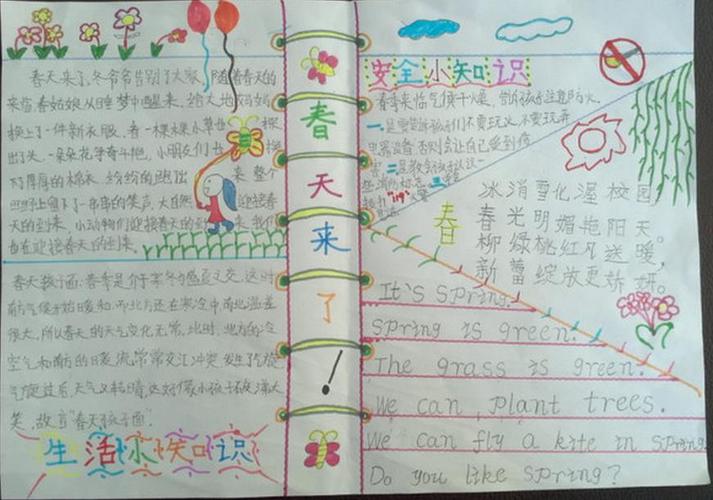 春天来了,冬爷爷告别了大家,随着春天的
来临春姑娘从睡梦中醒来,给大地妈妈
换上了一件新衣服。看一棵棵小草也探
出了头。一朵朵花争奇斗艳,小朋友们也脱
下了厚厚的棉衣,纷纷的跑出来,整个
田野上留下了一串串的笑声。大自然迎接春
天的到来,小动物们迎接春天的到来,我们
也在迎接春天的到来。
春天孩子面:春季是介于寒冬与盛夏之交,这时
南方气候开始暖和,而北方还在寒冷中,南北温差
很大,所以春天的天气变化无常,此时,北方的冷
空气和南方的日暖流常常交汇冲突,发生了气旋
气旋过后,天气又转晴,这好像小孩子破涕大
笑,故言"春天孩子面"
生活小知识
春天来了!
安全小知识
春季来临气候干燥,告诉孩子注意防火。
"119"
春
冰消雪化渥校园,
春光明媚艳阳天。
柳绿桃红风送暖,
新蕾绽放更娇妍。
It's spring.
Spring is green.
The grass is green.
We can plant trees.
We can fly a kite in spring.
Do you like spring?